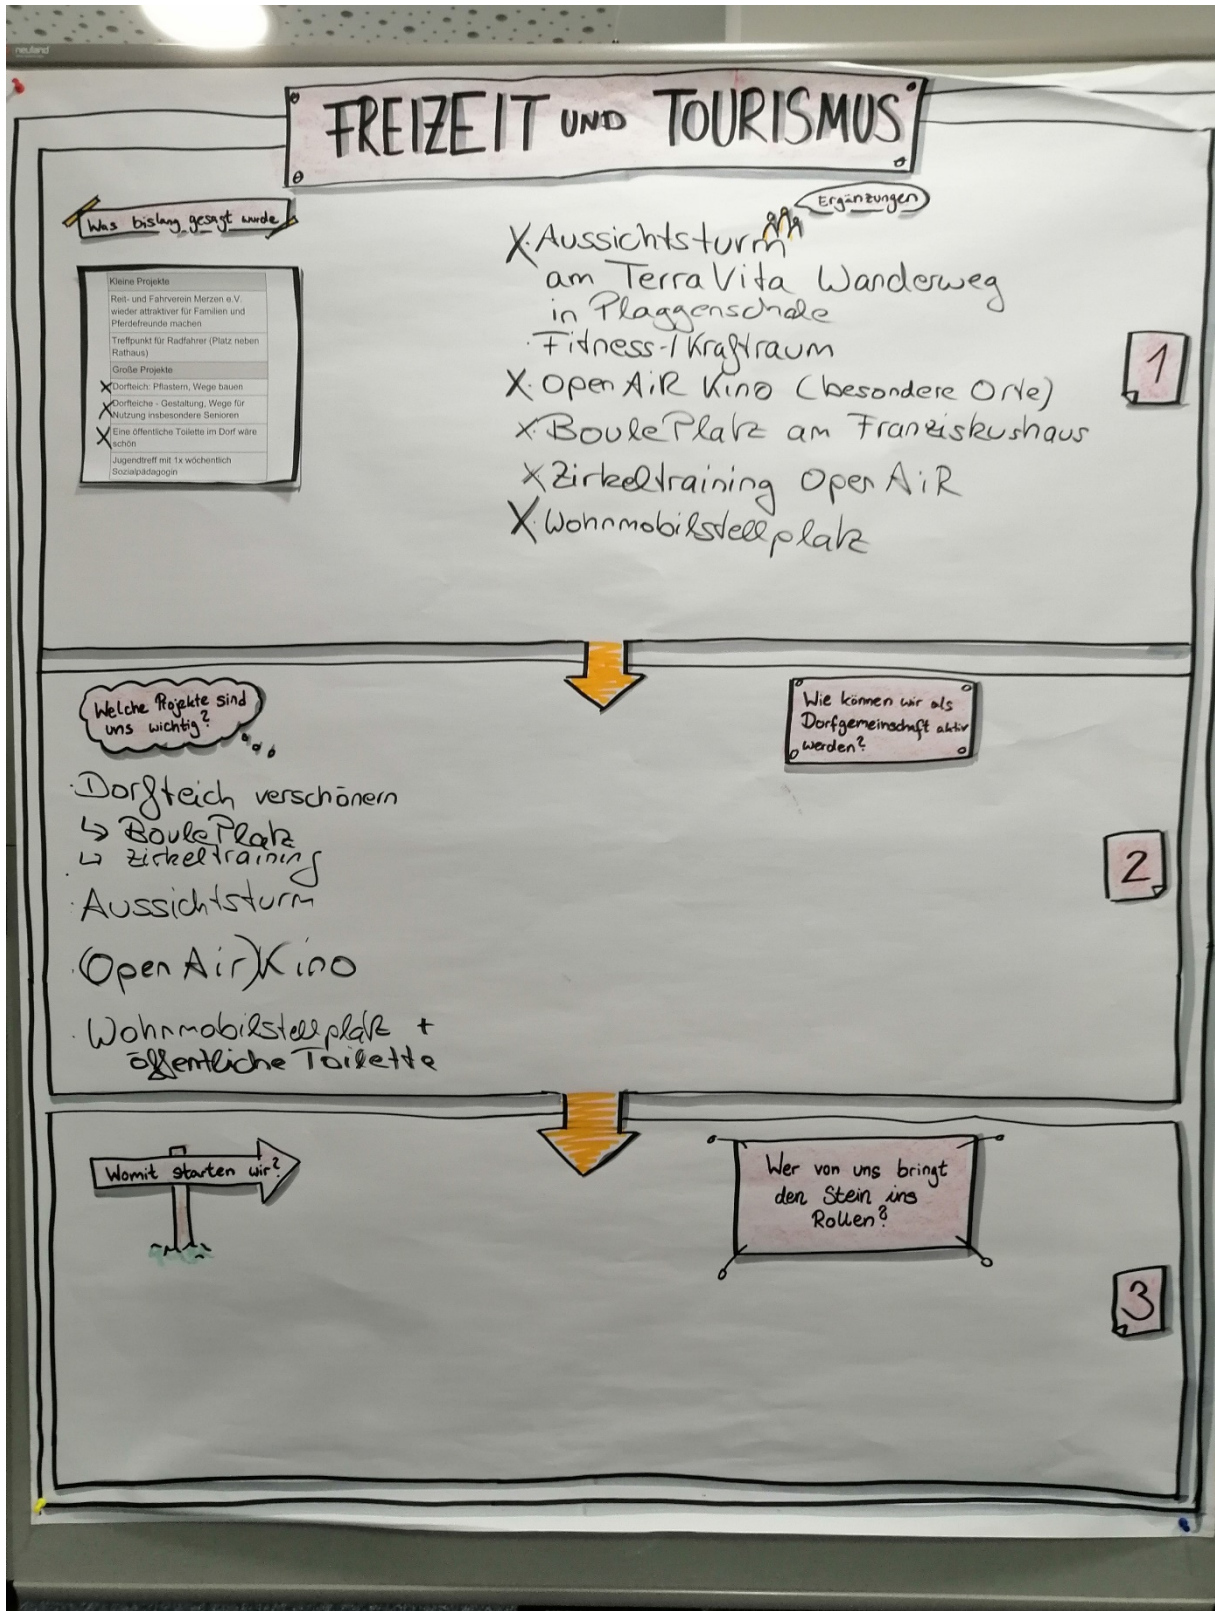 neuland
FREIZEIT UND TOURISMUS
Was bislang gesagt wurde
Kleine Projekte
Reit- und Fahrverein Merzen e.V.
wieder attraktiver für Familien und
Pferdefreunde machen
Treffpunkt für Radfahrer (Platz neben
Rathaus)
Große Projekte
X Dorfteich: Pflastern, Wege bauen
X Dorfteiche - Gestaltung, Wege für
Nutzung insbesondere Senioren
X Eine öffentliche Toilette im Dorf wäre
schön
Jugendtreff mit 1x wöchentlich
Sozialpädagogin
Ergänzungen
X · Aussichtsturm
am TerraVita Wanderweg
in Plaggenschale
· Fitness-/Kraftraum
X · Open AiR Kino (besondere Orte)
X · BoulePlatz am Franziskushaus
X Zirkeltraining Open AiR
X · Wohnmobilstellplatz
1
Welche Projekte sind
uns wichtig?
· Dorfteich verschönern
↳ BoulePlatz
↳ Zirkeltraining
· Aussichtsturm
· (Open Air) Kino
· Wohnmobilstellplatz +
öffentliche Toilette
Wie können wir als
Dorfgemeinschaft aktiv
werden?
2
Womit starten wir?
Wer von uns bringt
den Stein ins
Rollen?
3